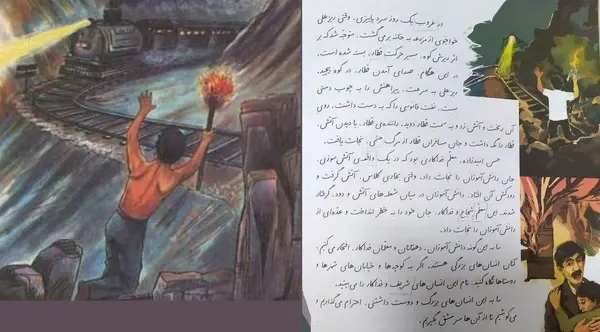 در غروب یک روز سرد پاییزی، وقتی ریزعلی
خواجوی از مزرعه به خانه برمی‌گشت، متوجّه شد که بر
اثر ریزش کوه، مسیر حرکت قطار، بسته شده است.
در این هنگام، صدای آمدن قطار، در کوه پیچید.
ریزعلی به سرعت، پیراهنش را به چوب دستی
بست، نفت فانوسی را که به دست داشت، روی
آن ریخت و آتش زد و به سمت قطار دوید. راننده‌ی قطار، با دیدن آتش،
قطار را نگه داشت و جان مسافران قطار از مرگ حتمی، نجات یافت.
حسن امیدزاده، معلّم فداکاری بود که در یک واقعه‌ی آتش‌سوزی،
جان دانش‌آموزان را نجات داد. وقتی بخاری کلاس، آتش گرفت و
دودکش آن افتاد، دانش‌آموزان در میان شعله‌های آتش و دود، گرفتار
شدند. این معلّم شجاع و فداکار، جان خود را به خطر انداخت و عدّه‌ای از
دانش‌آموزان را نجات داد.
ما به این گونه دانش‌آموزان، دهقانان و معلّمان فداکار، افتخار می‌کنیم.
آنان انسان‌های بزرگی هستند. اگر به کوچه‌ها و خیابان‌های شهرها و
روستاها نگاه کنید، نام این انسان‌های شریف و فداکار را می‌بینید.
ما به این انسان‌های بزرگ و دوست داشتنی، احترام می‌گذاریم و
می‌کوشیم تا از آن‌ها سرمشق بگیریم.